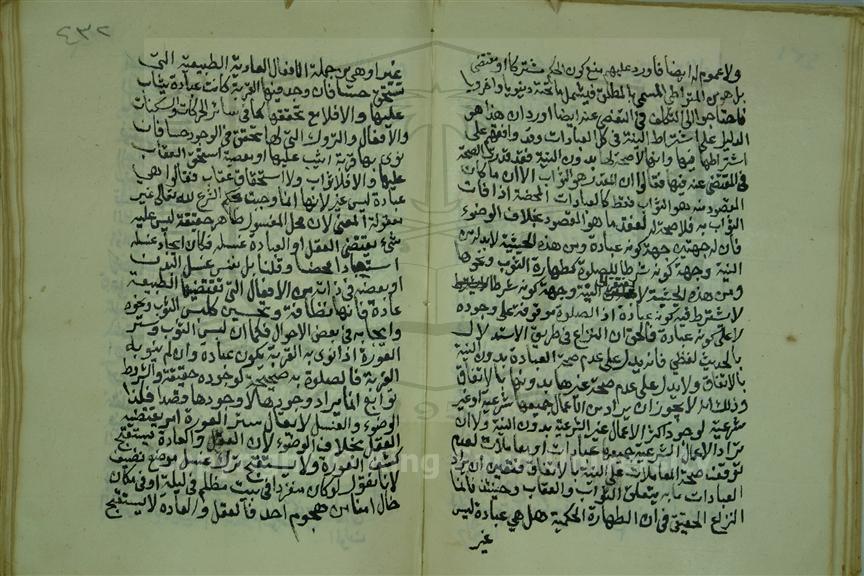 ولا عموم له ايضا فاورد عليهم منع كون الحكم مشتركا او مقتضى
بل هو من المتواطئ المسمى بالمطلق فيشمل ما تحته دنيويا واخرويا
فاحتاجوا الى التكلف في التقصي عنه ايضا اوردان هذا هو
الدليل على اشتراط النية في كل العبادات وقد وافقتم على
اشتراطها فيها وانها لا صحة لها بدون النية فقد قدرتم الصحة
في المقتضى عنه فيها فقالوا ان المقدر هو الثواب الا ان ما كان
المقصود منه هو الثواب فقط كالعبادات المحضة اذا فات
الثواب به فلا صحة له لفقد ما هو المقصود بخلاف الوضوء
فان له جهتين جهة كونه عبادة ومن هذه الحيثية لا بد له من
النية وجهة كونه شرطا للصلوة كطهارة الثوب ونحوها
ومن هذه الحيثية لا النية وجهة كونه شرطا
لا شترط فيه كونه عبادة اذ الصلوة موقوفة على وجوده
لا على كونه عبادة فالحق ان النزاع في طريق الاستدلال
بالحديث لفظي فانه يدل على عدم صحة العبادة بدون النية
بالاتفاق ولا يدل على عدم صحة غيرها بدونها بالاتفاق
وذلك انه لا يجوز ان يراد من الاعمال جميعها شرعية او غير
شرعية لوجود اكثر الاعمال غير الشرعية بدون النية ولا ان
يراد الاعمال الشرعية جميعها عبادات او معاملات لعدم
توقف صحة المعاملات على النية بالاتفاق فتعين ان يراد
العبادات ما به يتعلق الثواب والعقاب وحينئذ فانما
النزاع الحقيقي في ان الطهارة الحكمية هل هي عبادة ليس
غير
٤٣٢
غيرا وهي من جملة الافعال العادية الطبيعية التي
تستحق حسا فان وجد فيها القربة كانت عبادة يثاب
عليها والا فلا مع تحققها كما في سائر الحركات والسكنات
والافعال والتروك التي لها تحقق في الوجود حسا فان
نوى بها قربة اثيب عليها او معصية استحق العقاب
عليها والا فلا ثواب ولا استحقاق عقاب فقالوا هي
عبادة ليس غير لانها انما وجبت بحكم الشرع لله تعالى غير
معقولة المعنى لان محل المغسول طاهر حقيقة ليس عليه
شئ يقتضي العقل او العبادة غسله فكان ايجاد غسله
محضا وقلنا بل نفس غسل البدن
او بعضه في ذاته من الافعال التي تقتضيها الطبيعة
عادة فانها نظافة وتحسين كلبس الثوب ونحوه
وايجابه في بعض الاحوال فكما ان لبس الثوب وستر
العورة اذا نوى به القربة يكون عبادة وان لم ينو به
القربة فالصلوة به صحيحة لوجوده حقيقة والشروط
توابع انما يراد وجودها لا وجودها قصدا فكذا
الوضوء والغسل لا يقال ستر العورة امر يقتضيه
العقل بخلاف الوضوء لان العقل والعادة يستقبح
كشف العورة ولا يستقبح ترك غسل موضع نضيف
لانا نقول لو كان منفردا في بيت مظلم في ليلة او في مكان
خال امنا من هجوم احد فالعقل والعادة لا يستقبح